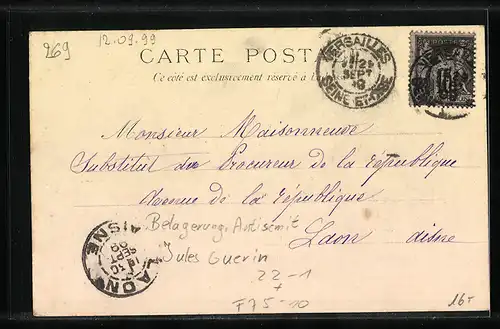 269
12.09.99
CARTE POST
Ce côté est exclusivement réservé à l
VERSAILLES
SEPT
SEINE ET OISE
Monsieur Maisonneuve
Substitut du Procureur de la République
Avenue de la république
Laon aisne
Belagerung. Antisemit
Jules Guerin
LAON
AISNE
SEPT
22-1
+
F75-10
16-